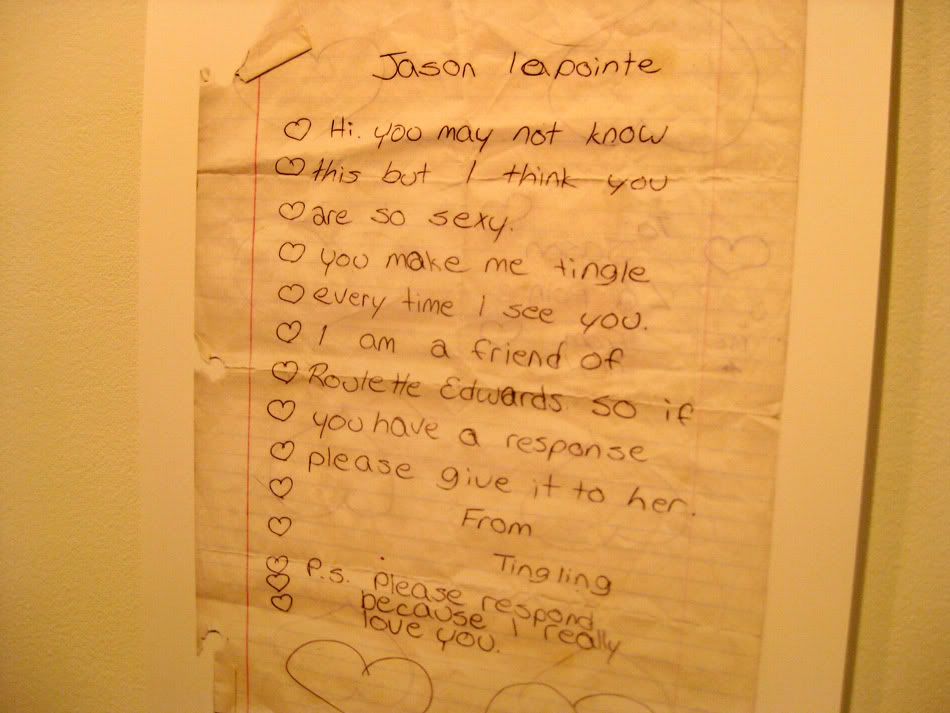 Jason lapointe
♡ Hi. you may not know
♡ this but I think you
♡ are so sexy.
♡ you make me tingle
♡ every time I see you.
♡ I am a friend of
♡ Roulette Edwards. so if
♡ you have a response
♡ please give it to her.
♡ From
♡ Tingling
♡ P.s. please respond
♡ because I really
♡ love you.